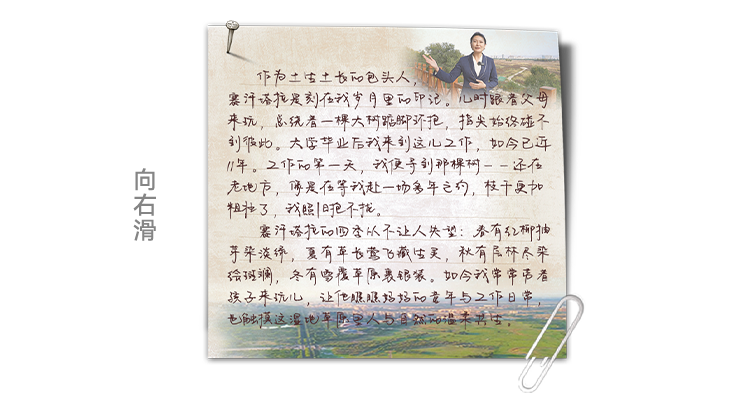 向右滑
作为土生土长的包头人,
赛汗塔拉是刻在我岁月里的印记。儿时跟着父母
来玩,总绕着一棵大树踮脚环抱,指尖始终碰不
到彼此。大学毕业后我来到这儿工作,如今已近
11年。工作的第一天,我便寻到那棵树——还在
老地方,像是在等我赴一场多年之约,枝干更加
粗壮了,我照旧抱不拢。
赛汗塔拉的四季从不让人失望:春有红柳抽
芽染淡绿,夏有草长莺飞藏生灵,秋有层林尽染
绘斑斓,冬有雪覆草原裹银装。如今我常常带着
孩子来玩儿,让他瞧瞧妈妈的童年与工作日常,
也触摸这湿地草原里人与自然的温柔共生。